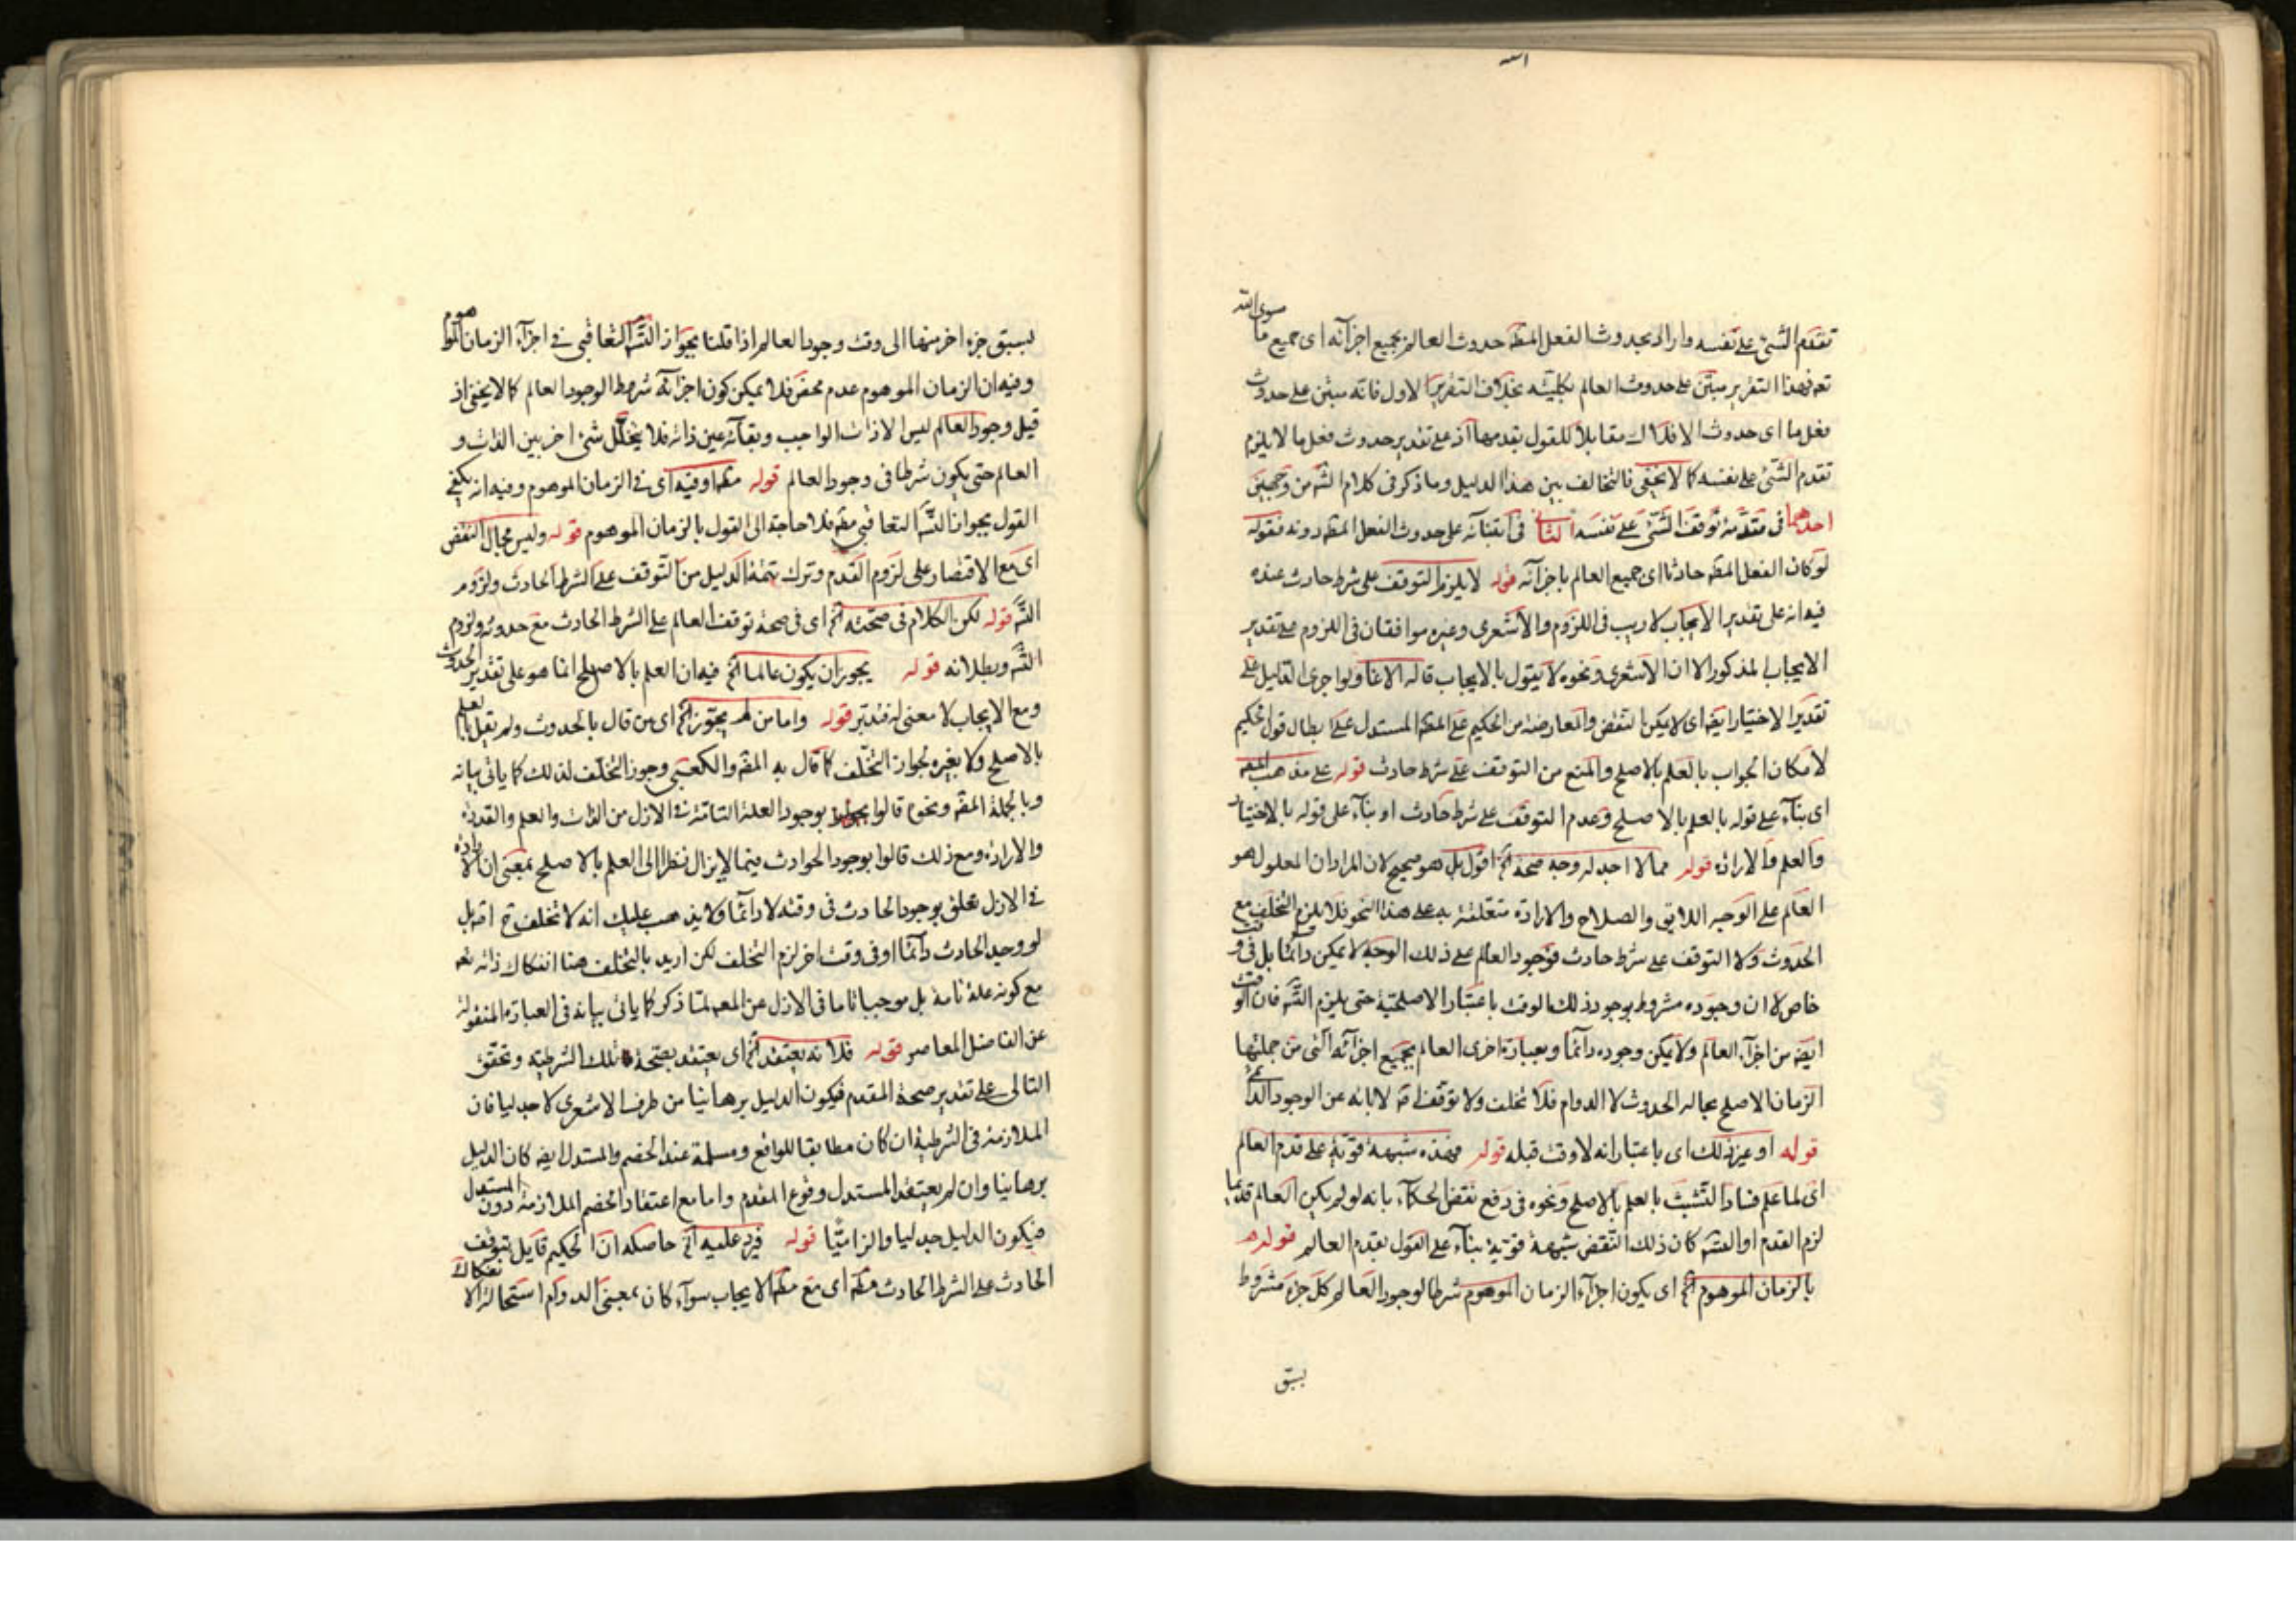 تقدم الشئ على نفسه واراد بحدوث الفعل المط حدوث العالم بجميع اجزائه اى جميع ما سوى الله
تعه فهذا التقرير مبتن على حدوث العالم بكليته بخلاف التقرير الاول فانه مبتن على حدوث
فعل ما اى حدوث الافلاك مقابلا للقول بقدمها اذ على تقدير حدوث فعل ما لا يلزم
تقدم الشئ على نفسه كما لا يخفى فالتخالف بين هذا الدليل وما ذكر فى كلام الشه من وجهين
احدهما فى مقدمة توقف الشئ على نفسه الثانى فى ابتنائه على حدوث الفعل المط دونه فقوله
لو كان الفعل المط حادثا اى جميع العالم باجزائه قوله لا يلزم التوقف على شرط حادث عنده
فيه انه على تقدير الايجاب لا ريب فى اللزوم والاشعرى وغيره موافقان فى اللزوم على تقدير
الايجاب المذكور الا ان الاشعرى ونحوه لا يقول بالايجاب قاله الاغا ولو اجرى الدليل على
تقدير الاختيار ايضه اى لا يمكن النقض والمعارضة من الحكيم على المط المستدل على ابطال قول الحكيم
لامكان الجواب بالعلم بالاصلح والمنع من التوقف على شرط حادث قوله على مذهب المصه
اى بناء على قوله بالعلم بالاصلح وعدم التوقف على شرط حادث او بناء على قوله بالاختيار
والعلم والارادة قوله مما لا اجد له وجه صحة الخ اقول بل هو صحيح لان المراد ان المعلول هو
العالم على الوجه اللايق والصلاح والارادة متعلقة به على هذا النحو فلا يلزم التخلف مع
الحدوث ولا التوقف على شرط حادث فوجود العالم على ذلك الوجه لا يمكن دائما بل فى وقت
خاص لا ان وجوده مشروط بوجود ذلك الوقت باعتبار الاصلحية حتى يلزم التسه فان الوقت
ايضه من اجزاء العالم ولا يمكن وجوده دائما وبعبارة اخرى العالم بجميع اجزائه التى من جملتها
الزمان الاصلح بحاله الحدوث لا الدوام فلا تخلف ولا توقف لابائه عن الوجود الدائمى
قوله او غير ذلك اى باعتبار انه لا وقت قبله قوله فهذه شبهة قوية على قدم العالم
اى لما علم فساد التشبث بالعلم بالاصلح ونحوه فى دفع نقض الحكماء بانه لو لم يكن العالم قديما
لزم القدم او التسه كان ذلك النقض شبهة قوية بناء على القول بقدم العالم قوله
بالزمان الموهوم الخ اى يكون اجزاء الزمان الموهوم شرطا لوجود العالم كل جزء مشروط
بسبق
لسبق جزء اخر منها الى وقت وجود العالم اذا قلنا بجواز التسه التعاقبى فى اجزاء الزمان الموهوم
وفيه ان الزمان الموهوم عدم محض فلا يمكن كون اجزائه شرط الوجود العالم كما لا يخفى اذ
قبل وجود العالم ليس الا ذات الواجب وبقائه عين ذاته فلا يتخلل شئ اخر بين الذات و
العالم حتى يكون شرطا فى وجود العالم قوله مط او فيه اى فى الزمان الموهوم وفيه انه يكفى
القول بجواز التسه التعاقبى مط فلا حاجة الى القول بالزمان الموهوم قوله وليس مجال النقض
اى مع الاقتصار على لزوم القدم وترك تتمة الدليل من التوقف على الشرط الحادث ولزوم
التسه قوله لكن الكلام فى صحته الخ اى فى صحة توقف العالم على الشرط الحادث مع حدوثه ولزوم
التسه وبطلانه قوله يجوز ان يكون عالما الخ فيه ان العلم بالاصلح انما هو على تقدير الحدوث
ومع الايجاب لا معنى له فتدبر قوله واما من لم يجوز الخ اى من قال بالحدوث ولم يقل بالعلم
بالاصلح ولا بغيره لجواز التخلف كما قال به المصه والكعبى وجوز التخلف لذلك كما ياتى بيانه
وبالجملة المصه ونحوه قالوا بوجود العلة التامة فى الازل من الذات والعلم والقدرة
والارادة ومع ذلك قالوا بوجود الحوادث فيما لا يزال نظرا الى العلم بالاصلح بمعنى ان الارادة
فى الازل تعلق بوجود الحادث فى وقته لا دائما ولا يذهب عليك انه لا تخلف ح بل
لو وجد الحادث دائما او فى وقت اخر لزم التخلف لكن اريد بالتخلف هنا انفكاك ذاته تعه
مع كونه علة تامة بل موجبا تاما فى الازل عن المعه لما ذكر كما ياتى بيانه فى العبارة المنقولة
عن الفاضل المعاصر قوله فلانه يعتقد الخ اى يعتقد بصحة تلك الشرطية وتحقق
التالى على تقدير صحة المقدم فيكون الدليل برهانيا من طرف الاشعرى لا جدليا فان
الملازمة فى الشرطية ان كان مطابقا للواقع ومسلمة عند الخصم والمستدل ايضه كان الدليل
برهانيا وان لم يعتقد المستدل وقوع المقدم واما مع اعتقاد الخصم الملازمة دون المستدل
فيكون الدليل جدليا والزاميا قوله فيرد عليه الخ حاصله ان الحكيم قايل بتوقف
الحادث على الشرط الحادث مط اى مع مط الايجاب سواء كان بمعنى الدوام استحالة الانفكاك